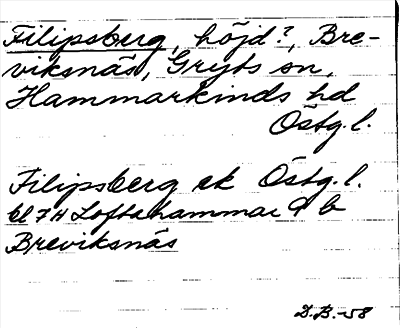 Filipsberg, höjd?, Bre-
viksnäs, Gryts sn,
Hammarkinds hd
Östg.l.
Filipsberg ek Östg.l.
bl 7H Loftahammar d b
Breviksnäs
D.B.-58